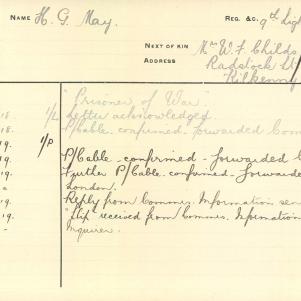 NAME H. G. May. REG. &c. 9th Lig
NEXT OF KIN Mrs W. F. Childs
Radstock
Kilkenny
"Prisoner of War"
18. 1/L Letter acknowledged.
18. P/Cable. confirmed. Forwarded Com
19. 1/P P/Cable - confirmed - forwarded C
19. Further P/Cable. confirmed - Forwarded
" London.
19. Reply from Commrs. Information sen
19. "Slip" received from Commrs. Information
Inquirer.